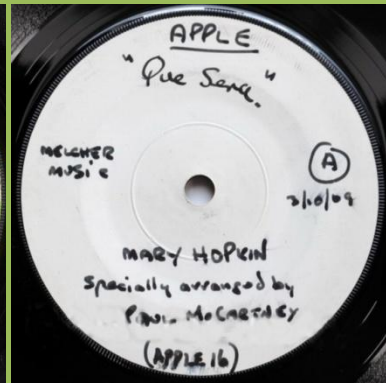 APPLE
"Que Sera."
MELCHER
MUSIC
A
3/10/69
MARY HOPKIN
specially arranged by
PAUL McCARTNEY
(APPLE 16)